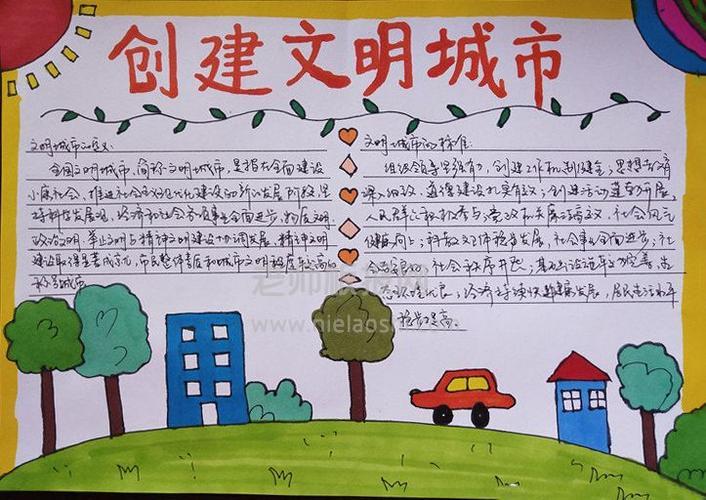 创建文明城市
文明城市的含义:
全国文明城市,简称文明城市,是指在全面建设
小康社会,推进社会主义现代化建设的新的发展阶段,坚
持科学发展观,经济和社会各项事业全面进步,物质文明
政治文明
与精神文明建设协调发展,精神文明
建设取得显著成就,市民整体素质和城市文明程度较高的
城市
文明城市的标准:
组织领导坚强有力,创建工作机制健全;思想教育
深入细致,道德建设扎实有效;创建活动蓬勃开展,
人民群众积极参与;党政机关廉洁高效,社会风气
健康向上;科教文卫体稳步发展,社会事业全面进步;社
会
社会秩序
;基础设施
完善,生
态环境优良;经济持续快速健康发展,居民生活水平
稳步提高。
老师板报网
www.nielaos